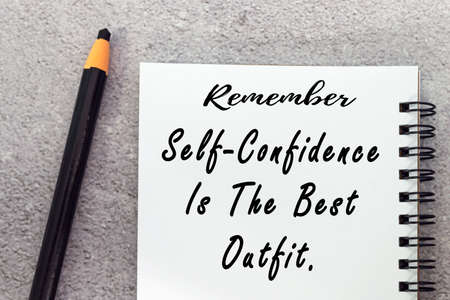 Remember
Self-Confidence
Is The Best
Outfit.